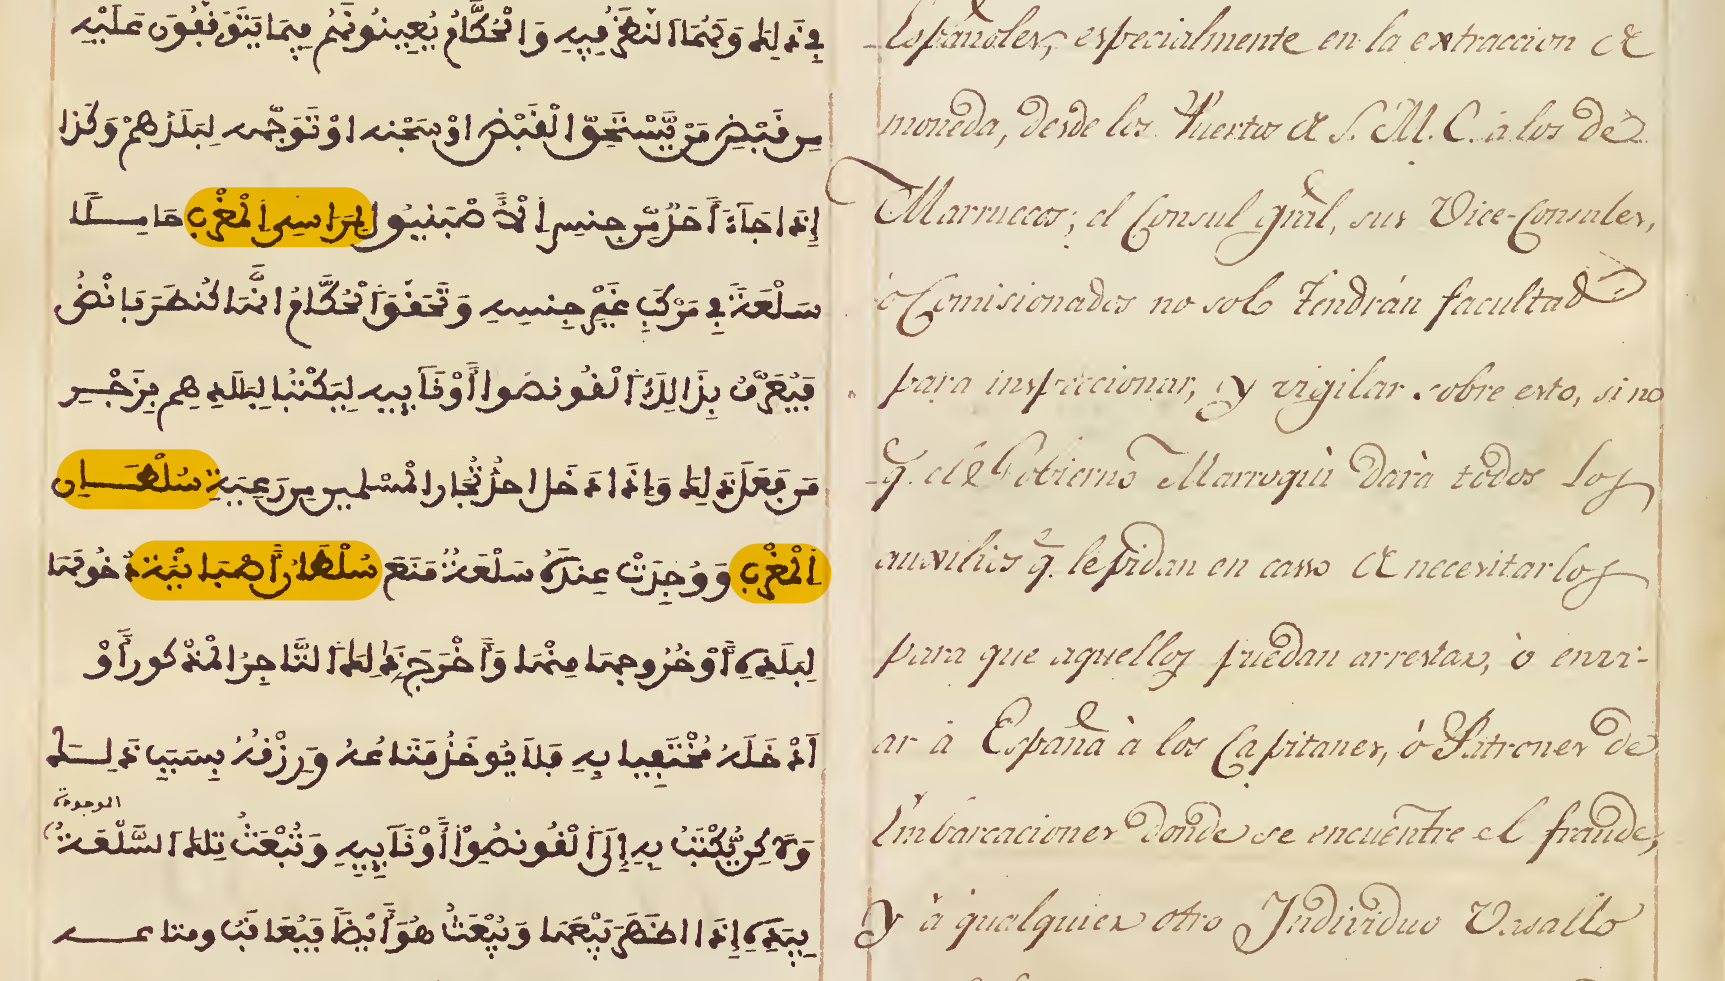 في ذلك وتمام النظر فيه والحكام يعينونهم فيما يتوقفون عليه
من قبض من يستحق القبض او سجنه او توجهه لبلدهم وكذا
إذا جاء أحد من جنس الاصبنيول لمراسي المغرب حاملا
سلعة في مركب غير جنسه وتحقق الحكام انها كنطربانض
فيعرف بذالك القونصوا أو نايبه ليكتب لبلدهم بزجر
من فعل ذلك وإذا دخل احد تجار المسلمين من رعية سلطان
المغرب ووجدت عنده سلعة منع سلطان أصبانية دخولها
لبلده أو خروجها منها وأخرج ذلك التاجر المذكور أو
أدخله مختفيا به فلا يوخذ متاعه ورزقه بسبب ذلك
الموجودة
ولاكن يكتب به إلى القونصوا أو نايبه وتبعث تلك السلعة
بيده إذا ويبعث هو أيضا فيعاقب ومتاعه
Españoles, especialmente en la extraccion de
moneda, desde los Puertos de S. M. C. a los de
Marruecos; el Consul gral, sus Vice-Consules,
ó Comisionados no solo tendrán facultad
para inspeccionar, y vigilar sobre esto, si no
q. el Gobierno Marroquí dará todos los
auxilios q. le pidan en casso de necesitarlos
para que aquellos puedan arrestar, ò envi-
ar à España à los Capitanes, ó Patrones de
Embarcaciones donde se encuentre el fraude,
y à qualquier otro Individuo Vasallo